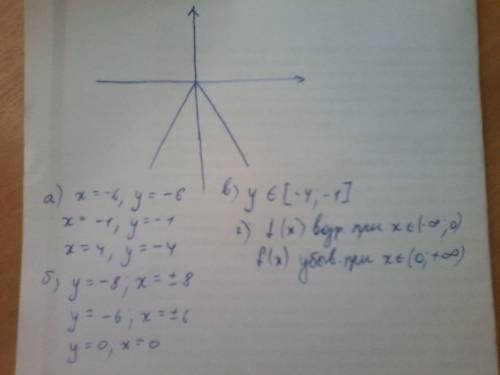 а) x = -6, y = -6
x = -1; y = -1
x = 4, y = -4
б) y = -8; x = ±8
y = -6; x = ±6
y = 0, x = 0
в) y ∈ [-4, -1]
г) f(x) возр при x ∈ (-∞; 0)
f(x) убыв. при x ∈ (0; +∞)